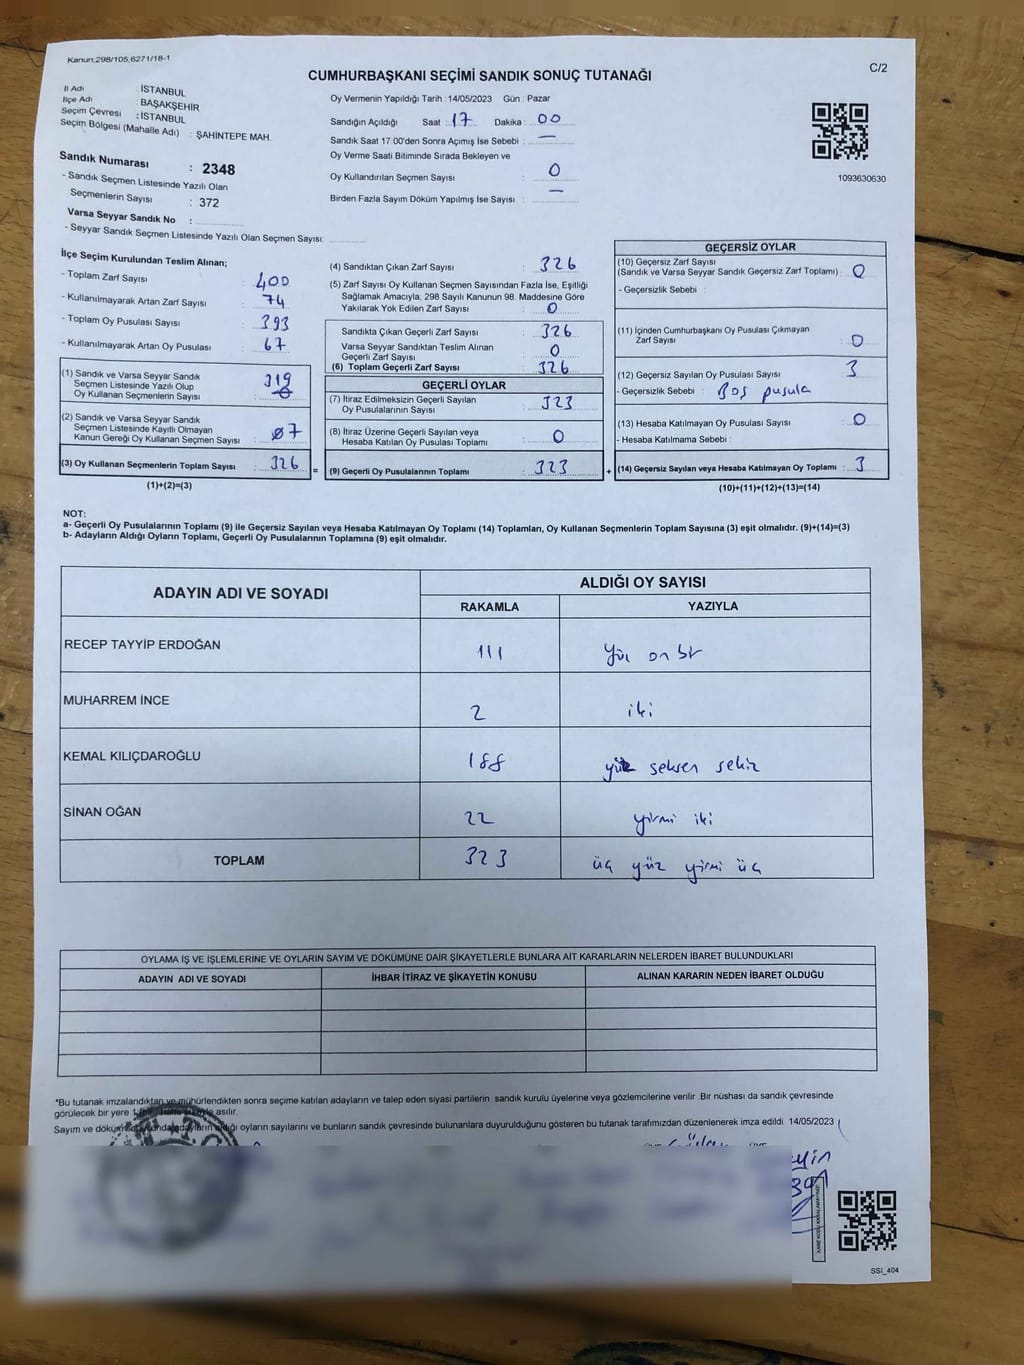 Kanun:298/105,6271/18-1
C/2
CUMHURBAŞKANI SEÇİMİ SANDIK SONUÇ TUTANAĞI
İl Adı : İSTANBUL
İlçe Adı : BAŞAKŞEHİR
Seçim Çevresi : İSTANBUL
Seçim Bölgesi (Mahalle Adı) : ŞAHİNTEPE MAH.
Sandık Numarası : 2348
- Sandık Seçmen Listesinde Yazılı Olan
Seçmenlerin Sayısı : 372
Varsa Seyyar Sandık No :
- Seyyar Sandık Seçmen Listesinde Yazılı Olan Seçmen Sayısı:
Oy Vermenin Yapıldığı Tarih : 14/05/2023 Gün : Pazar
Sandığın Açıldığı Saat : 17 Dakika : 00
Sandık Saat 17.00'den Sonra Açımış İse Sebebi : —
Oy Verme Saati Bitiminde Sırada Bekleyen ve
Oy Kullandırılan Seçmen Sayısı : 0
Birden Fazla Sayım Döküm Yapılmış İse Sayısı : —
1093630630
İlçe Seçim Kurulundan Teslim Alınan;
- Toplam Zarf Sayısı : 400
- Kullanılmayarak Artan Zarf Sayısı : 74
- Toplam Oy Pusulası Sayısı : 393
- Kullanılmayarak Artan Oy Pusulası : 67
(1) Sandık ve Varsa Seyyar Sandık
Seçmen Listesinde Yazılı Olup
Oy Kullanan Seçmenlerin Sayısı : 319
(2) Sandık ve Varsa Seyyar Sandık
Seçmen Listesinde Kayıtlı Olmayan
Kanun Gereği Oy Kullanan Seçmen Sayısı : 07
(3) Oy Kullanan Seçmenlerin Toplam Sayısı : 326
(1)+(2)=(3)
(4) Sandıktan Çıkan Zarf Sayısı : 326
(5) Zarf Sayısı Oy Kullanan Seçmen Sayısından Fazla İse, Eşitliği
Sağlamak Amacıyla, 298 Sayılı Kanunun 98. Maddesine Göre
Yakılarak Yok Edilen Zarf Sayısı : 0
Sandıkta Çıkan Geçerli Zarf Sayısı : 326
Varsa Seyyar Sandıktan Teslim Alınan
Geçerli Zarf Sayısı : 0
(6) Toplam Geçerli Zarf Sayısı : 326
GEÇERLİ OYLAR
(7) İtiraz Edilmeksizin Geçerli Sayılan
Oy Pusulalarının Sayısı : 323
(8) İtiraz Üzerine Geçerli Sayılan veya
Hesaba Katılan Oy Pusulası Toplamı : 0
= (9) Geçerli Oy Pusulalarının Toplamı : 323
GEÇERSİZ OYLAR
(10) Geçersiz Zarf Sayısı
(Sandık ve Varsa Seyyar Sandık Geçersiz Zarf Toplamı) : 0
- Geçersizlik Sebebi :
(11) İçinden Cumhurbaşkanı Oy Pusulası Çıkmayan
Zarf Sayısı : 0
(12) Geçersiz Sayılan Oy Pusulası Sayısı : 3
- Geçersizlik Sebebi : Boş pusula
(13) Hesaba Katılmayan Oy Pusulası Sayısı : 0
- Hesaba Katılmama Sebebi :
+ (14) Geçersiz Sayılan veya Hesaba Katılmayan Oy Toplamı : 3
(10)+(11)+(12)+(13)=(14)
NOT:
a- Geçerli Oy Pusulalarının Toplamı (9) ile Geçersiz Sayılan veya Hesaba Katılmayan Oy Toplamı (14) Toplamları, Oy Kullanan Seçmenlerin Toplam Sayısına (3) eşit olmalıdır. (9)+(14)=(3)
b- Adayların Aldığı Oyların Toplamı, Geçerli Oy Pusulalarının Toplamına (9) eşit olmalıdır.
ADAYIN ADI VE SOYADI
ALDIĞI OY SAYISI
RAKAMLA YAZIYLA
RECEP TAYYİP ERDOĞAN 111 yüz on bir
MUHARREM İNCE 2 iki
KEMAL KILIÇDAROĞLU 188 yüz seksen sekiz
SİNAN OĞAN 22 yirmi iki
TOPLAM 323 üç yüz yirmi üç
OYLAMA İŞ VE İŞLEMLERİNE VE OYLARIN SAYIM VE DÖKÜMÜNE DAİR ŞİKAYETLERLE BUNLARA AİT KARARLARIN NELERDEN İBARET BULUNDUKLARI
ADAYIN ADI VE SOYADI İHBAR İTİRAZ VE ŞİKAYETİN KONUSU ALINAN KARARIN NEDEN İBARET OLDUĞU
*Bu tutanak imzalandıktan ve mühürlendikten sonra seçime katılan adayların ve talep eden siyasi partilerin sandık kurulu üyelerine veya gözlemcilerine verilir .Bir nüshası da sandık çevresinde
görülecek bir yere asılır.
Sayım ve döküm oyların sayılarını ve bunların sandık çevresinde bulunanlara duyurulduğunu gösteren bu tutanak tarafımızdan düzenlenerek imza edildi. 14/05/2023
SSI_404